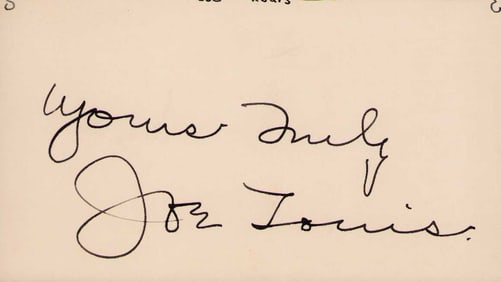 hours
Yours Truly
Joe Louis.